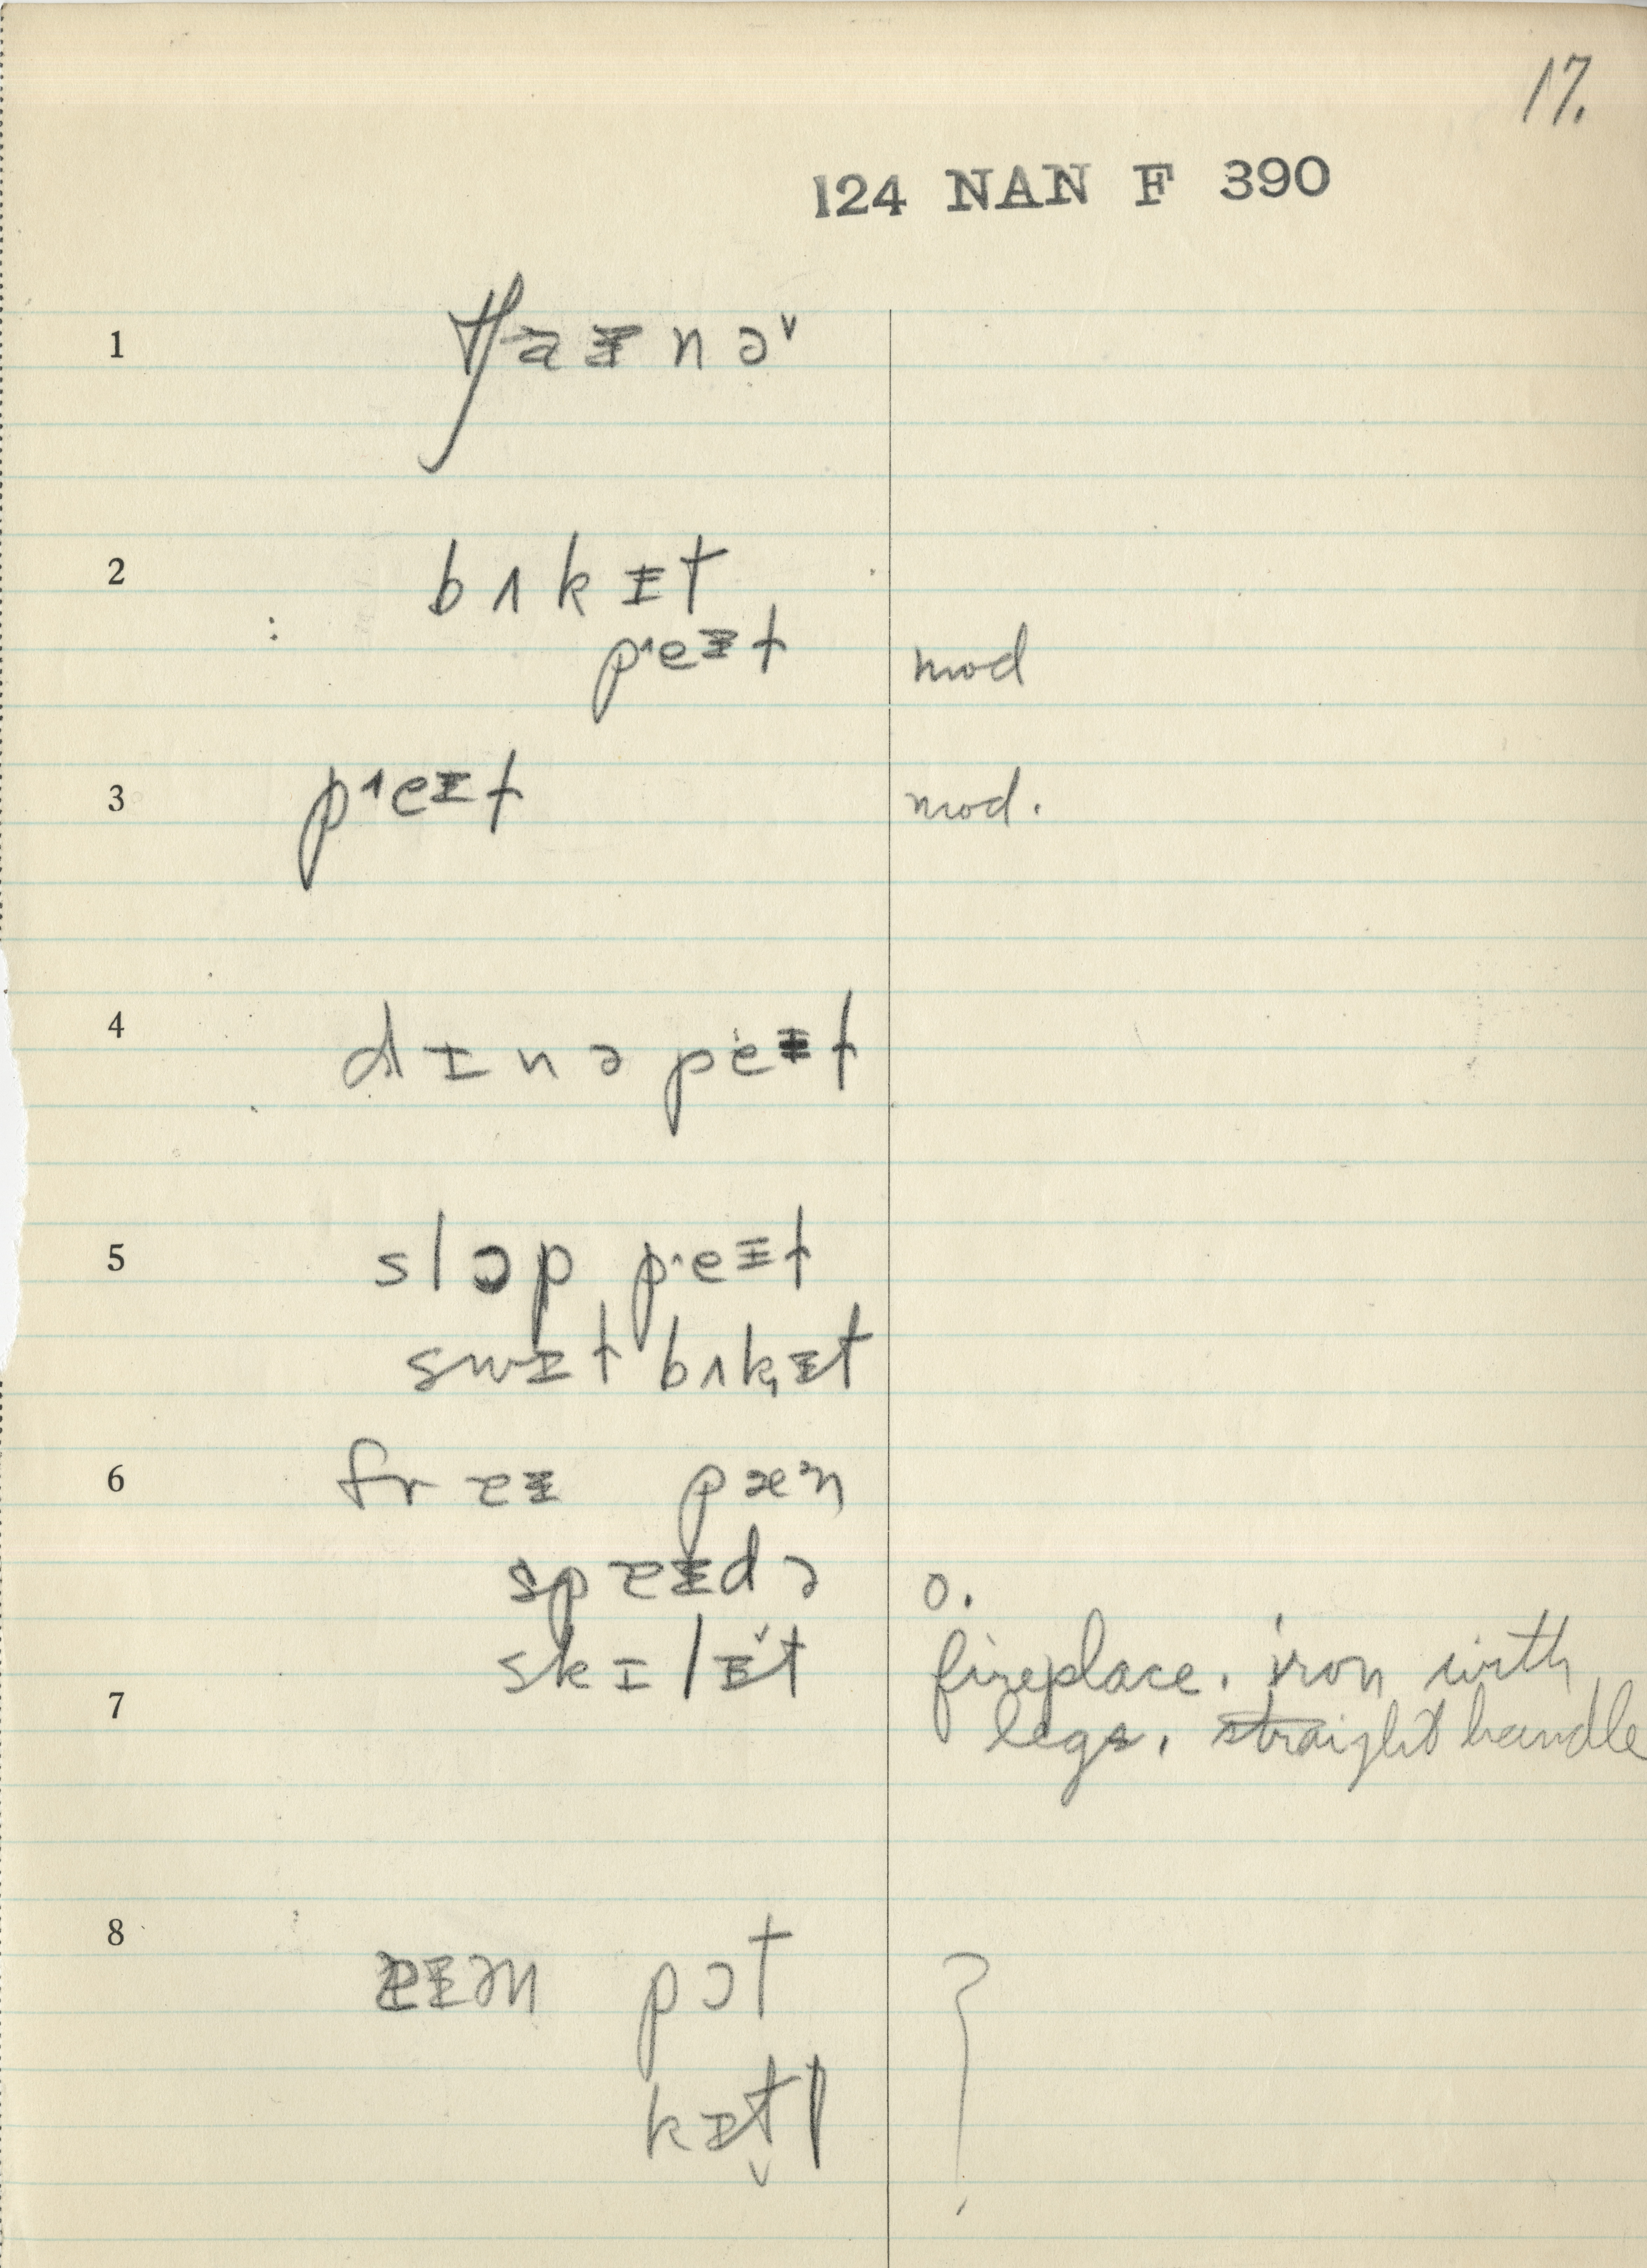 17.
124 NAN F 390
1 tʃaɪnə˅
2 bʌkɪt
pʼeɪt mod
3 pʼeɪt mod.
4 dɪnə peɪt
5 slɔp pʼeɪt
swɪt bʌkɪt
6 fraɪ pæn
spaɪdə o.
skɪlɪt fireplace. iron with
7 legs. straight handle
8 pɔt ?
kɪtl